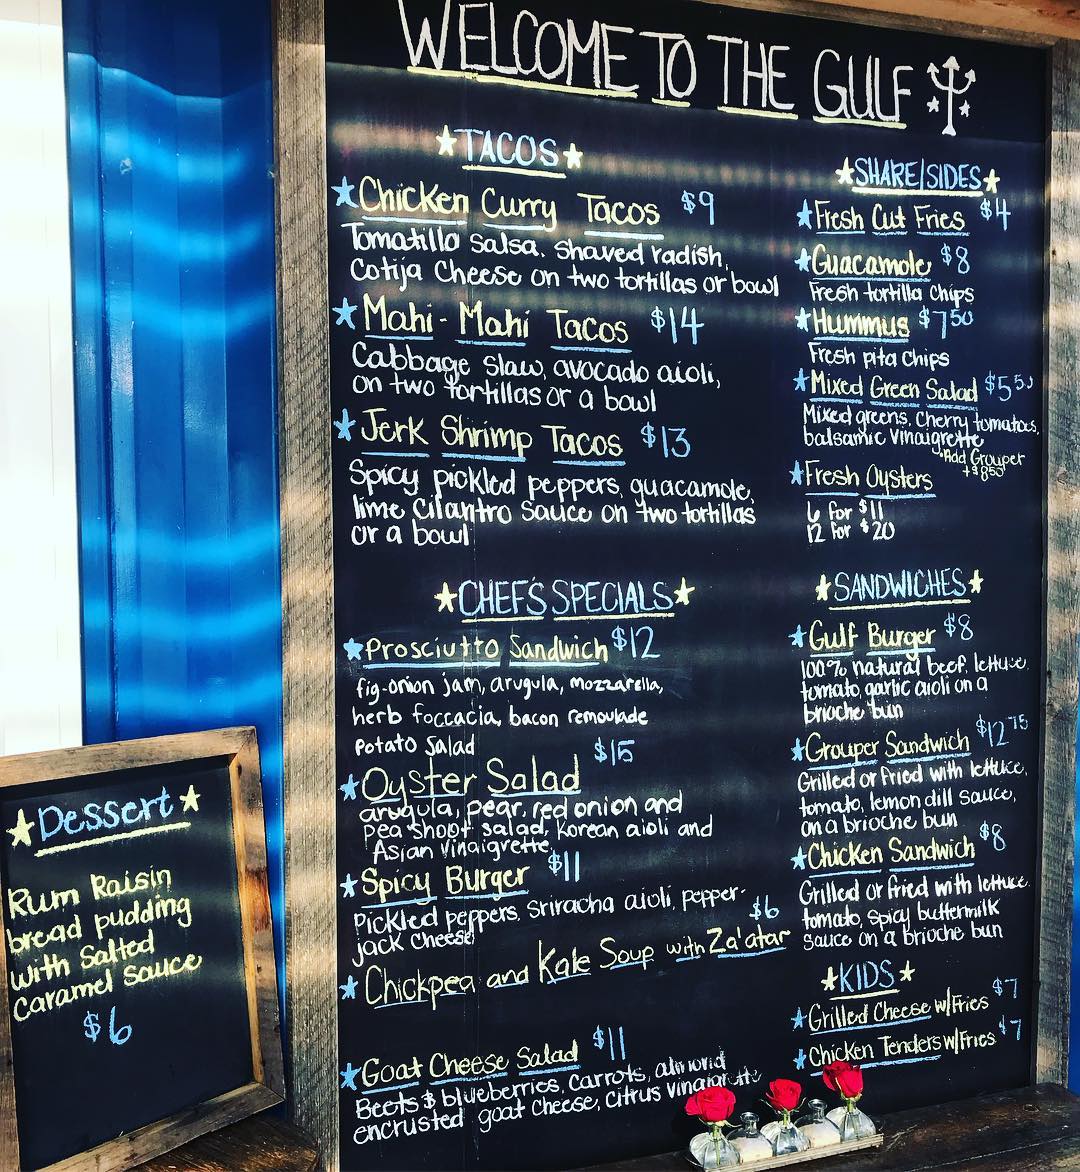 WELCOME TO THE GULF
TACOS
Chicken Curry Tacos $9
Tomatillo Salsa, shaved radish,
Cotija Cheese on two tortillas or bowl
Mahi-Mahi Tacos $14
Cabbage slaw, avocado aioli,
on two tortillas or a bowl
Jerk Shrimp Tacos $13
Spicy pickled peppers, guacamole,
lime Cilantro Sauce on two tortillas
or a bowl
CHEF'S SPECIALS
Prosciutto Sandwich $12
fig-onion jam, arugula, mozzarella,
herb foccacia, bacon remoulade
potato salad
Oyster Salad $15
arugula, pear, red onion and
pea shoot salad, Korean aioli and
Asian vinaigrette
Spicy Burger $11
Pickled peppers, sriracha aioli, pepper-
jack cheese
Chickpea and Kale Soup with Za'atar $6
Goat Cheese Salad $11
Beets & blueberries, carrots, almond
encrusted goat cheese, citrus vinaigrette
SHARE/SIDES
Fresh Cut Fries $4
Guacamole $8
Fresh tortilla chips
Hummus $7.50
Fresh pita chips
Mixed Green Salad $5.50
Mixed greens, cherry tomatoes,
balsamic vinaigrette
*Add Grouper
+$8.50
Fresh Oysters
6 for $11
12 for $20
SANDWICHES
Gulf Burger $8
100% natural beef, lettuce,
tomato, garlic aioli on a
brioche bun
Grouper Sandwich $12.75
Grilled or fried with lettuce,
tomato, lemon dill sauce,
on a brioche bun
Chicken Sandwich $8
Grilled or fried with lettuce
tomato, spicy buttermilk
sauce on a brioche bun
KIDS
Grilled Cheese w/Fries $7
Chicken Tenders w/Fries $7
Dessert
Rum Raisin
bread pudding
with Salted
Caramel Sauce
$6